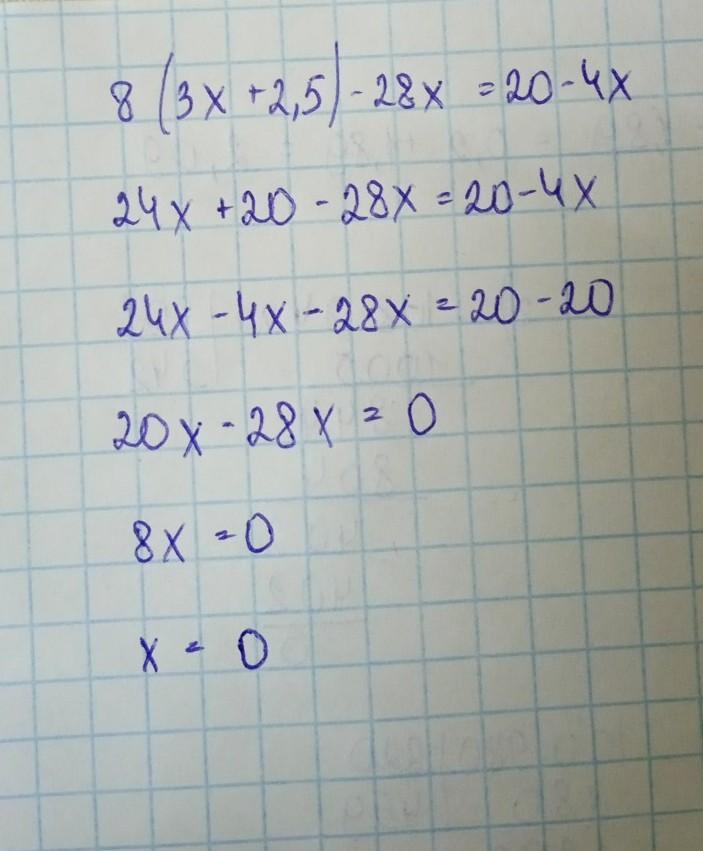 8 (3x + 2,5) - 28x = 20 - 4x
24x + 20 - 28x = 20 - 4x
24x - 4x - 28x = 20 - 20
20x - 28x = 0
8x = 0
x = 0